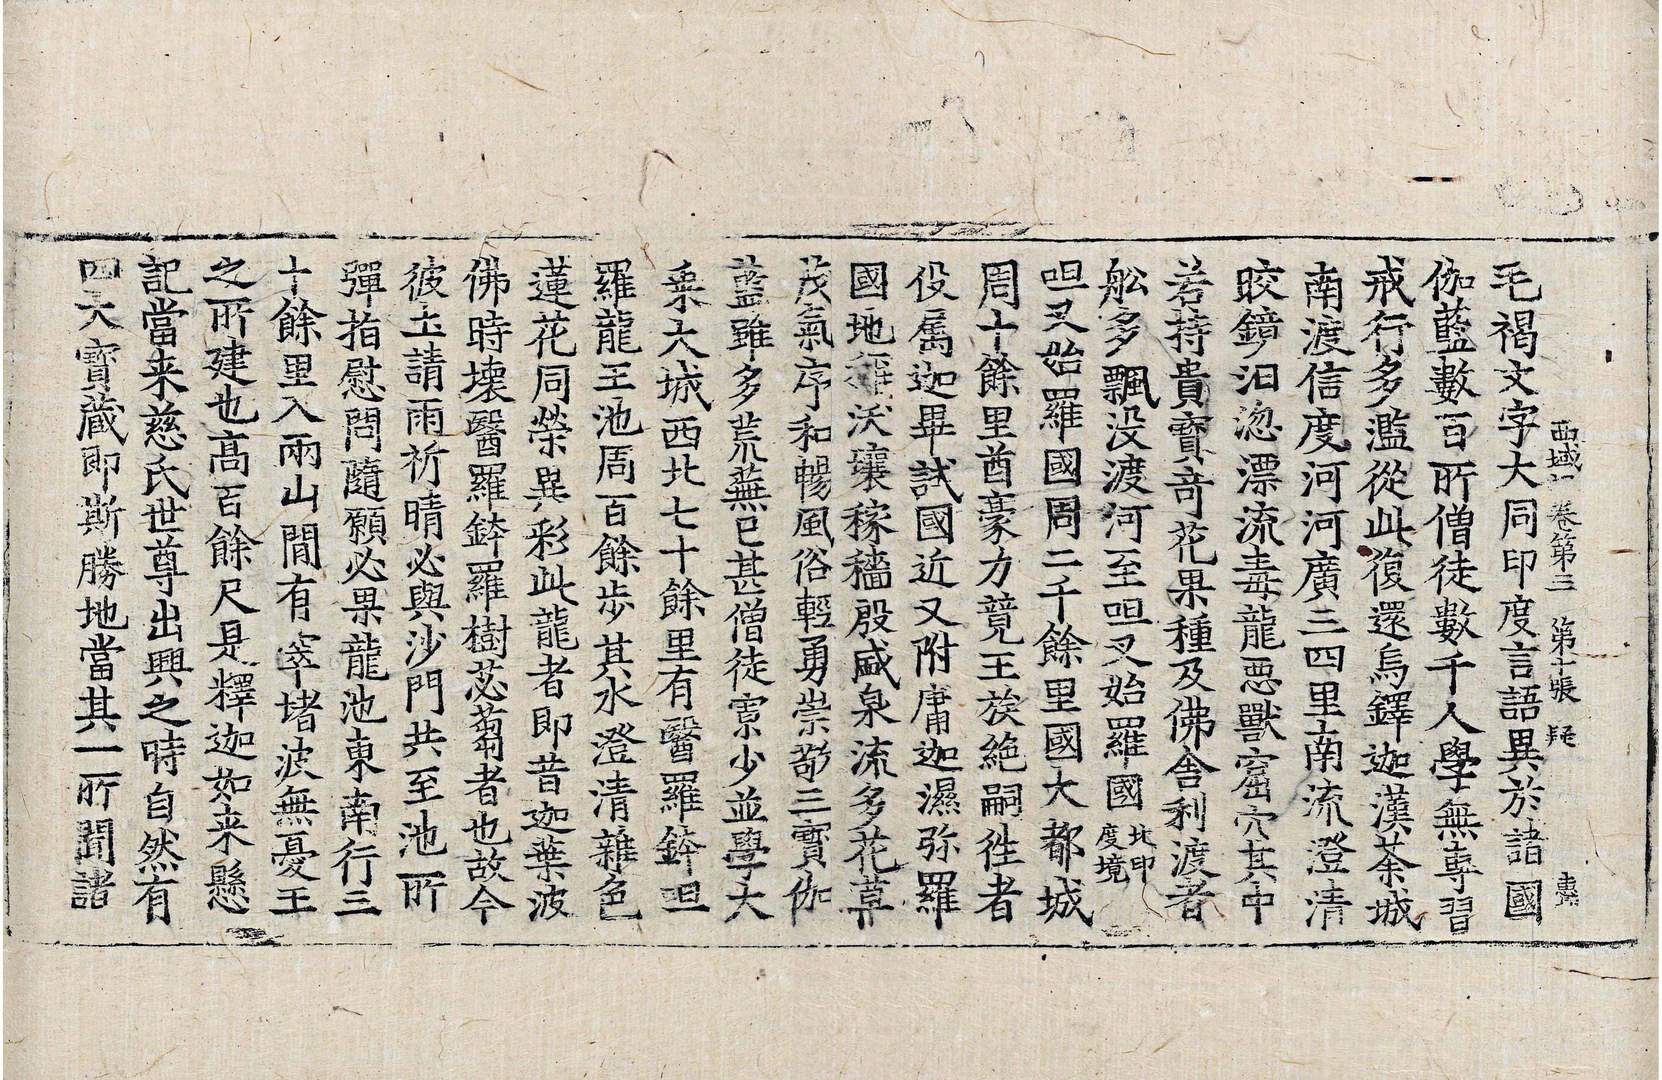 毛褐文字大同印度言語異於諸國
西域記卷第三　第十張　疑
伽藍數百所僧徒數千人學無專習
戒行多濫從此復還烏鐸迦漢茶城
南渡信度河河廣三四里南流澄清
皎鏡汨淴漂流毒龍惡獸窟穴其中
若持貴寶奇花果種及佛舍利渡者
舩多飄没渡河至呾叉始羅國北印度境
呾叉始羅國周二千餘里國大都城
周十餘里酋豪力競王族絶嗣徃者
役屬迦畢試國近又附庸迦濕弥羅
國地稱沃壤稼穡殷盛泉流多花草
茂氣序和暢風俗輕勇崇敬三寶伽
藍雖多荒蕪已甚僧徒寡少並學大
乗大城西北七十餘里有醫羅鉢呾
羅龍王池周百餘歩其水澄清雜色
蓮花同榮異彩此龍者即昔迦葉波
佛時壊醫羅鉢羅樹苾蒭者也故今
彼土請雨祈晴必與沙門共至池所
彈指慰問隨願必果龍池東南行三
十餘里入兩山間有窣堵波無憂王
之所建也髙百餘尺是釋迦如来懸
記當来慈氏世尊出興之時自然有
四大寶藏即斯勝地當其一所聞諸